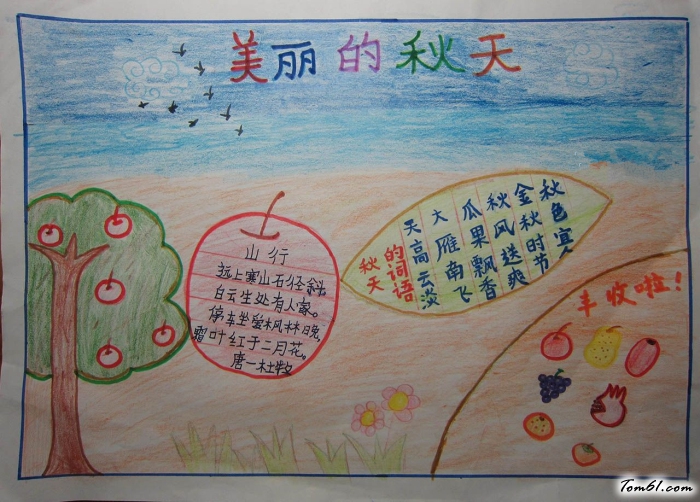 美丽的秋天
山行
远上寒山石径斜,
白云生处有人家。
停车坐爱枫林晚,
霜叶红于二月花。
唐一杜牧
秋天
的词语
天高云淡
大雁南飞
瓜果飘香
秋风送爽
金秋时节
秋色宜人
丰收啦!
Tom61.com